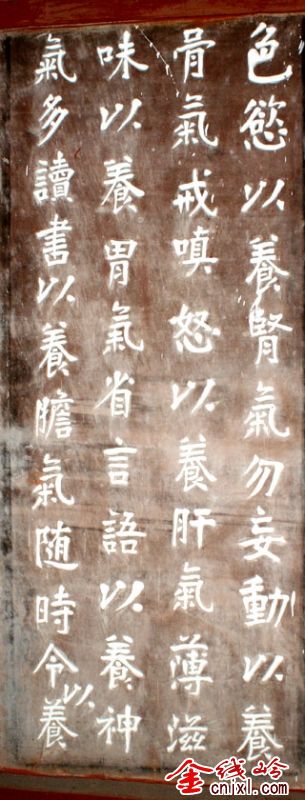 色慾以養腎氣勿妄動以養
骨氣戒嗔怒以養肝氣薄滋
味以養胃氣省言語以養神
氣多讀書以養膽氣随時令以養
金线岭
cnjxl.com